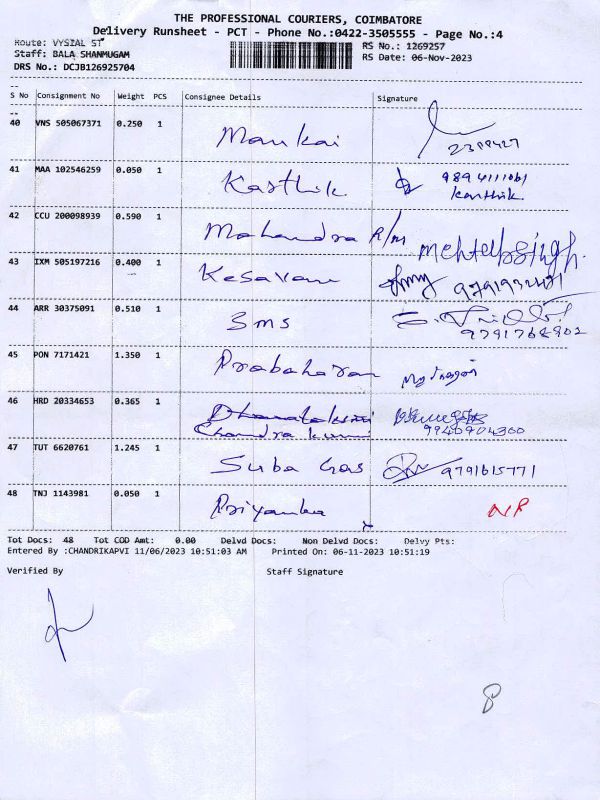 THE PROFESSIONAL COURIERS, COIMBATORE
Delivery Runsheet - PCT - Phone No.:0422-3505555 - Page No.:4
Route: VYSIAL ST
RS No.: 1269257
Staff: BALA SHANMUGAM
RS Date: 06-Nov-2023
DRS No.: DCJB126925704
S No Consignment No Weight PCS Consignee Details Signature
40 VNS 505067371 0.250 1 Mankai
41 MAA 102546259 0.050 1 Karthik 9894111061
Karthik
42 CCU 200098939 0.590 1 Mahandra R/m
43 IXM 505197216 0.400 1 Kesavan
44 ARR 30375091 0.510 1 Sms
9791768902
45 PON 7171421 1.350 1 Prabaharan
46 HRD 20334653 0.365 1
Chandra
9940904300
47 TUT 6620761 1.245 1 Suba Gas 9791615771
48 TNJ 1143981 0.050 1 Priyanka NP
Tot Docs: 48 Tot COD Amt: 0.00 Delvd Docs: Non Delvd Docs: Delvy Pts:
Entered By :CHANDRIKAPVI 11/06/2023 10:51:03 AM Printed On: 06-11-2023 10:51:19
Verified By Staff Signature
8